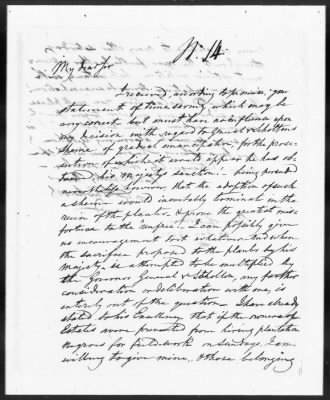 No. 14
My dear sir
I received, according to promise, your
statement of time served, which may be
very correct but must have no influence upon
my decision with regard to General v. Scholtens
scheme of gradual emancipation, for the prose-
cution of which it would appear he has ob-
tained his Majesty's sanction. being persuaded
nevertheless however that the adoption of such
a scheme would inevitably terminate in the
ruin of the planter, & prove the greatest mis-
fortune to the "unfree". I can possibly give
no encouragement to it whatever. And when
the sacrifice proposed to the planter by his
Majesty, be attempted to be multiplied by
the Governor General v. Scholten, any further
consideration or deliberation with me, is
entirely out of the question. I have already
stated to his Excellency that if the owners of
Estates were prevented from hiring plantation
negroes for field work on Sundays, I am
willing to give mine, & those belonging